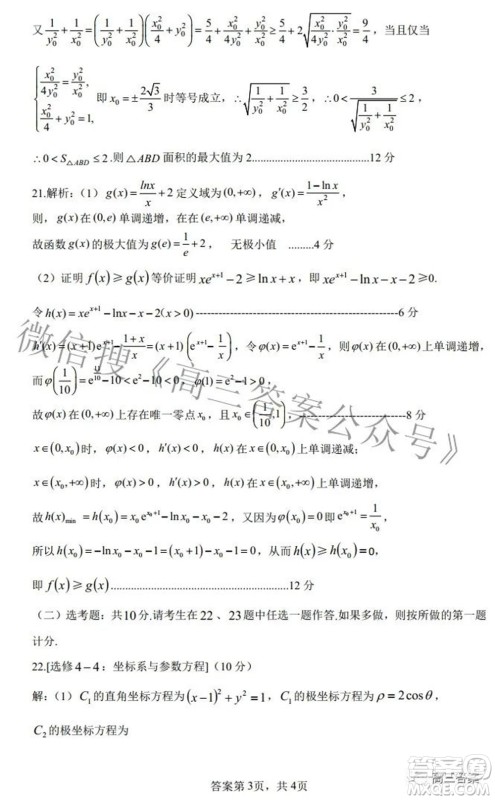 又 1/y₀² + 1/x₀² = (1/y₀² + 1/x₀²)(x₀²/4 + y₀²) = 5/4 + x₀²/4y₀² + y₀²/x₀² ≥ 5/4 + 2√(x₀²/4y₀² · y₀²/x₀²) = 9/4，当且仅当
{ x₀²/4y₀² = y₀²/x₀², x₀²/4 + y₀² = 1, 即 x₀ = ±2√3/3 时等号成立，∴ √(1/y₀² + 1/x₀²) ≥ 3/2，∴ 0 < 3/√(1/y₀² + 1/x₀²) ≤ 2，
∴ 0 < S△ABD ≤ 2.则 △ABD 面积的最大值为 2......................................12 分
21.解析：（1）g(x) = lnx/x + 2 定义域为(0,+∞)，g′(x) = (1−ln x)/x²，
则，g(x)在(0,e)单调递增，在在(e,+∞)单调递减，
故函数 g(x)的极大值为 g(e) = 1/e + 2，  无极小值  .........4 分
（2）证明 f(x) ≥ g(x)等价证明 xeˣ⁺¹ − 2 ≥ ln x + x，即 xeˣ⁺¹ − ln x − x − 2 ≥ 0.
令 h(x) = xeˣ⁺¹ − ln x − x − 2(x > 0)-----------------------------------------6 分
h′(x) = (x+1)eˣ⁺¹ − (1+x)/x = (x+1)(eˣ⁺¹ − 1/x)，令 φ(x) = eˣ⁺¹ − 1/x，则 φ(x)在 x∈(0,+∞)上单调递增，
而 φ(1/10) = e^(11/10) − 10 < e² − 10 < 0，φ(1) = e² − 1 > 0，
故 φ(x)在(0,+∞)上存在唯一零点 x₀，且 x₀ ∈ (1/10, 1)，---------------------8 分
x∈(0,x₀)时，φ(x) < 0，h′(x) < 0，h(x)在 x∈(0,x₀)上单调递减；
x∈(x₀,+∞)时，φ(x) > 0，h′(x) > 0，h(x)在 x∈(x₀,+∞)上单调递增，
故 h(x)min = h(x₀) = x₀e^(x₀+1) − ln x₀ − x₀ − 2，又因为 φ(x₀) = 0 即 e^(x₀+1) = 1/x₀，
所以 h(x₀) = −ln x₀ − x₀ − 1 = (x₀+1) − x₀ − 1 = 0，从而 h(x) ≥ h(x₀) = 0，
即 f(x) ≥ g(x)......................................................12 分
（二）选考题：共10分.请考生在 22、23题中任选一题作答.如果多做，则按所做的第一题
计分.
22.[选修 4－4：坐标系与参数方程]（10 分）
解：（1）C₁的直角坐标方程为(x−1)² + y² = 1，C₁的极坐标方程为 ρ = 2cosθ，
C₂的极坐标方程为
答案第 3页，共 4页
微信搜《高三答案公众号》
高三答案